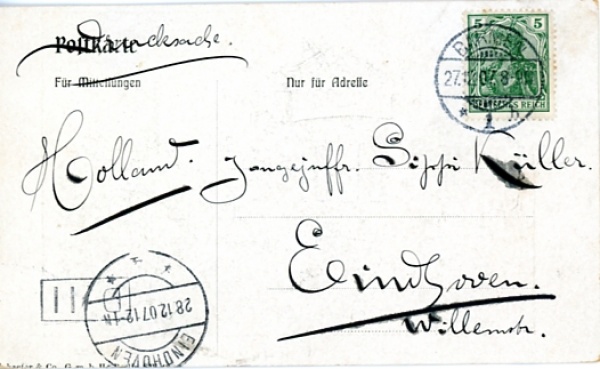 Postkarte
Drucksache.
Für Mitteilungen
Nur für Adresse
5 5
DEUTSCHES REICH
BERLIN
27.12.07. 8-9N
* 1 h
Holland. Jongejuffr. Sophi Küller.
Eindhoven.
Willemstr.
28.12.07.12-1N
EINDHOVEN